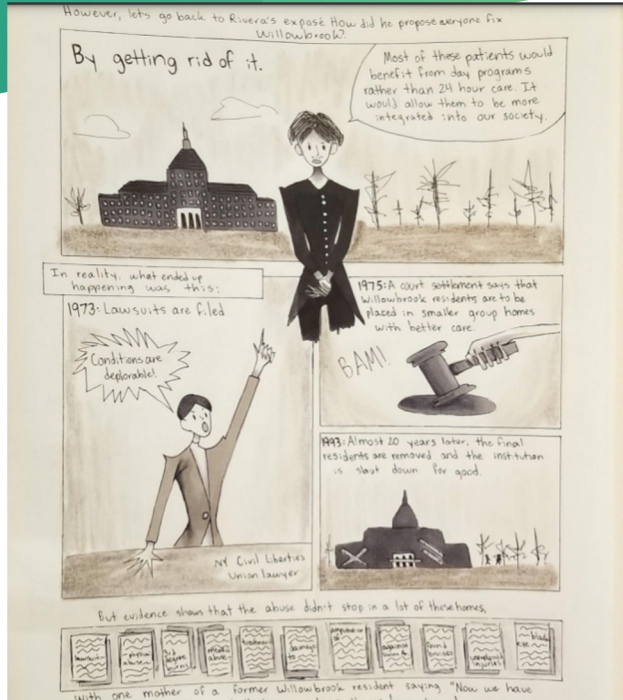 However, lets go back to Rivera's exposé. How did he propose everyone fix
Willowbrook?
By getting rid of it.
Most of these patients would
benefit from day programs
rather than 24 hour care. It
would allow them to be more
integrated into our society.
In reality, what ended up
happening was this:
1973: Lawsuits are filed
Conditions are
deplorable!
NY Civil Liberties
Union lawyer
1975: A court settlement says that
Willowbrook residents are to be
placed in smaller group homes
with better care.
BAM!
1993: Almost 20 years later, the final
residents are removed and the institution
is shut down for good.
But evidence shows that the abuse didn't stop in a lot of these homes,
physical
abuse
3rd
degree
burns
abuse
damage
to
amputation
against
found
bruises
unexplained
injuries
black
eye
with one mother of a former Willowbrook resident saying "Now we have